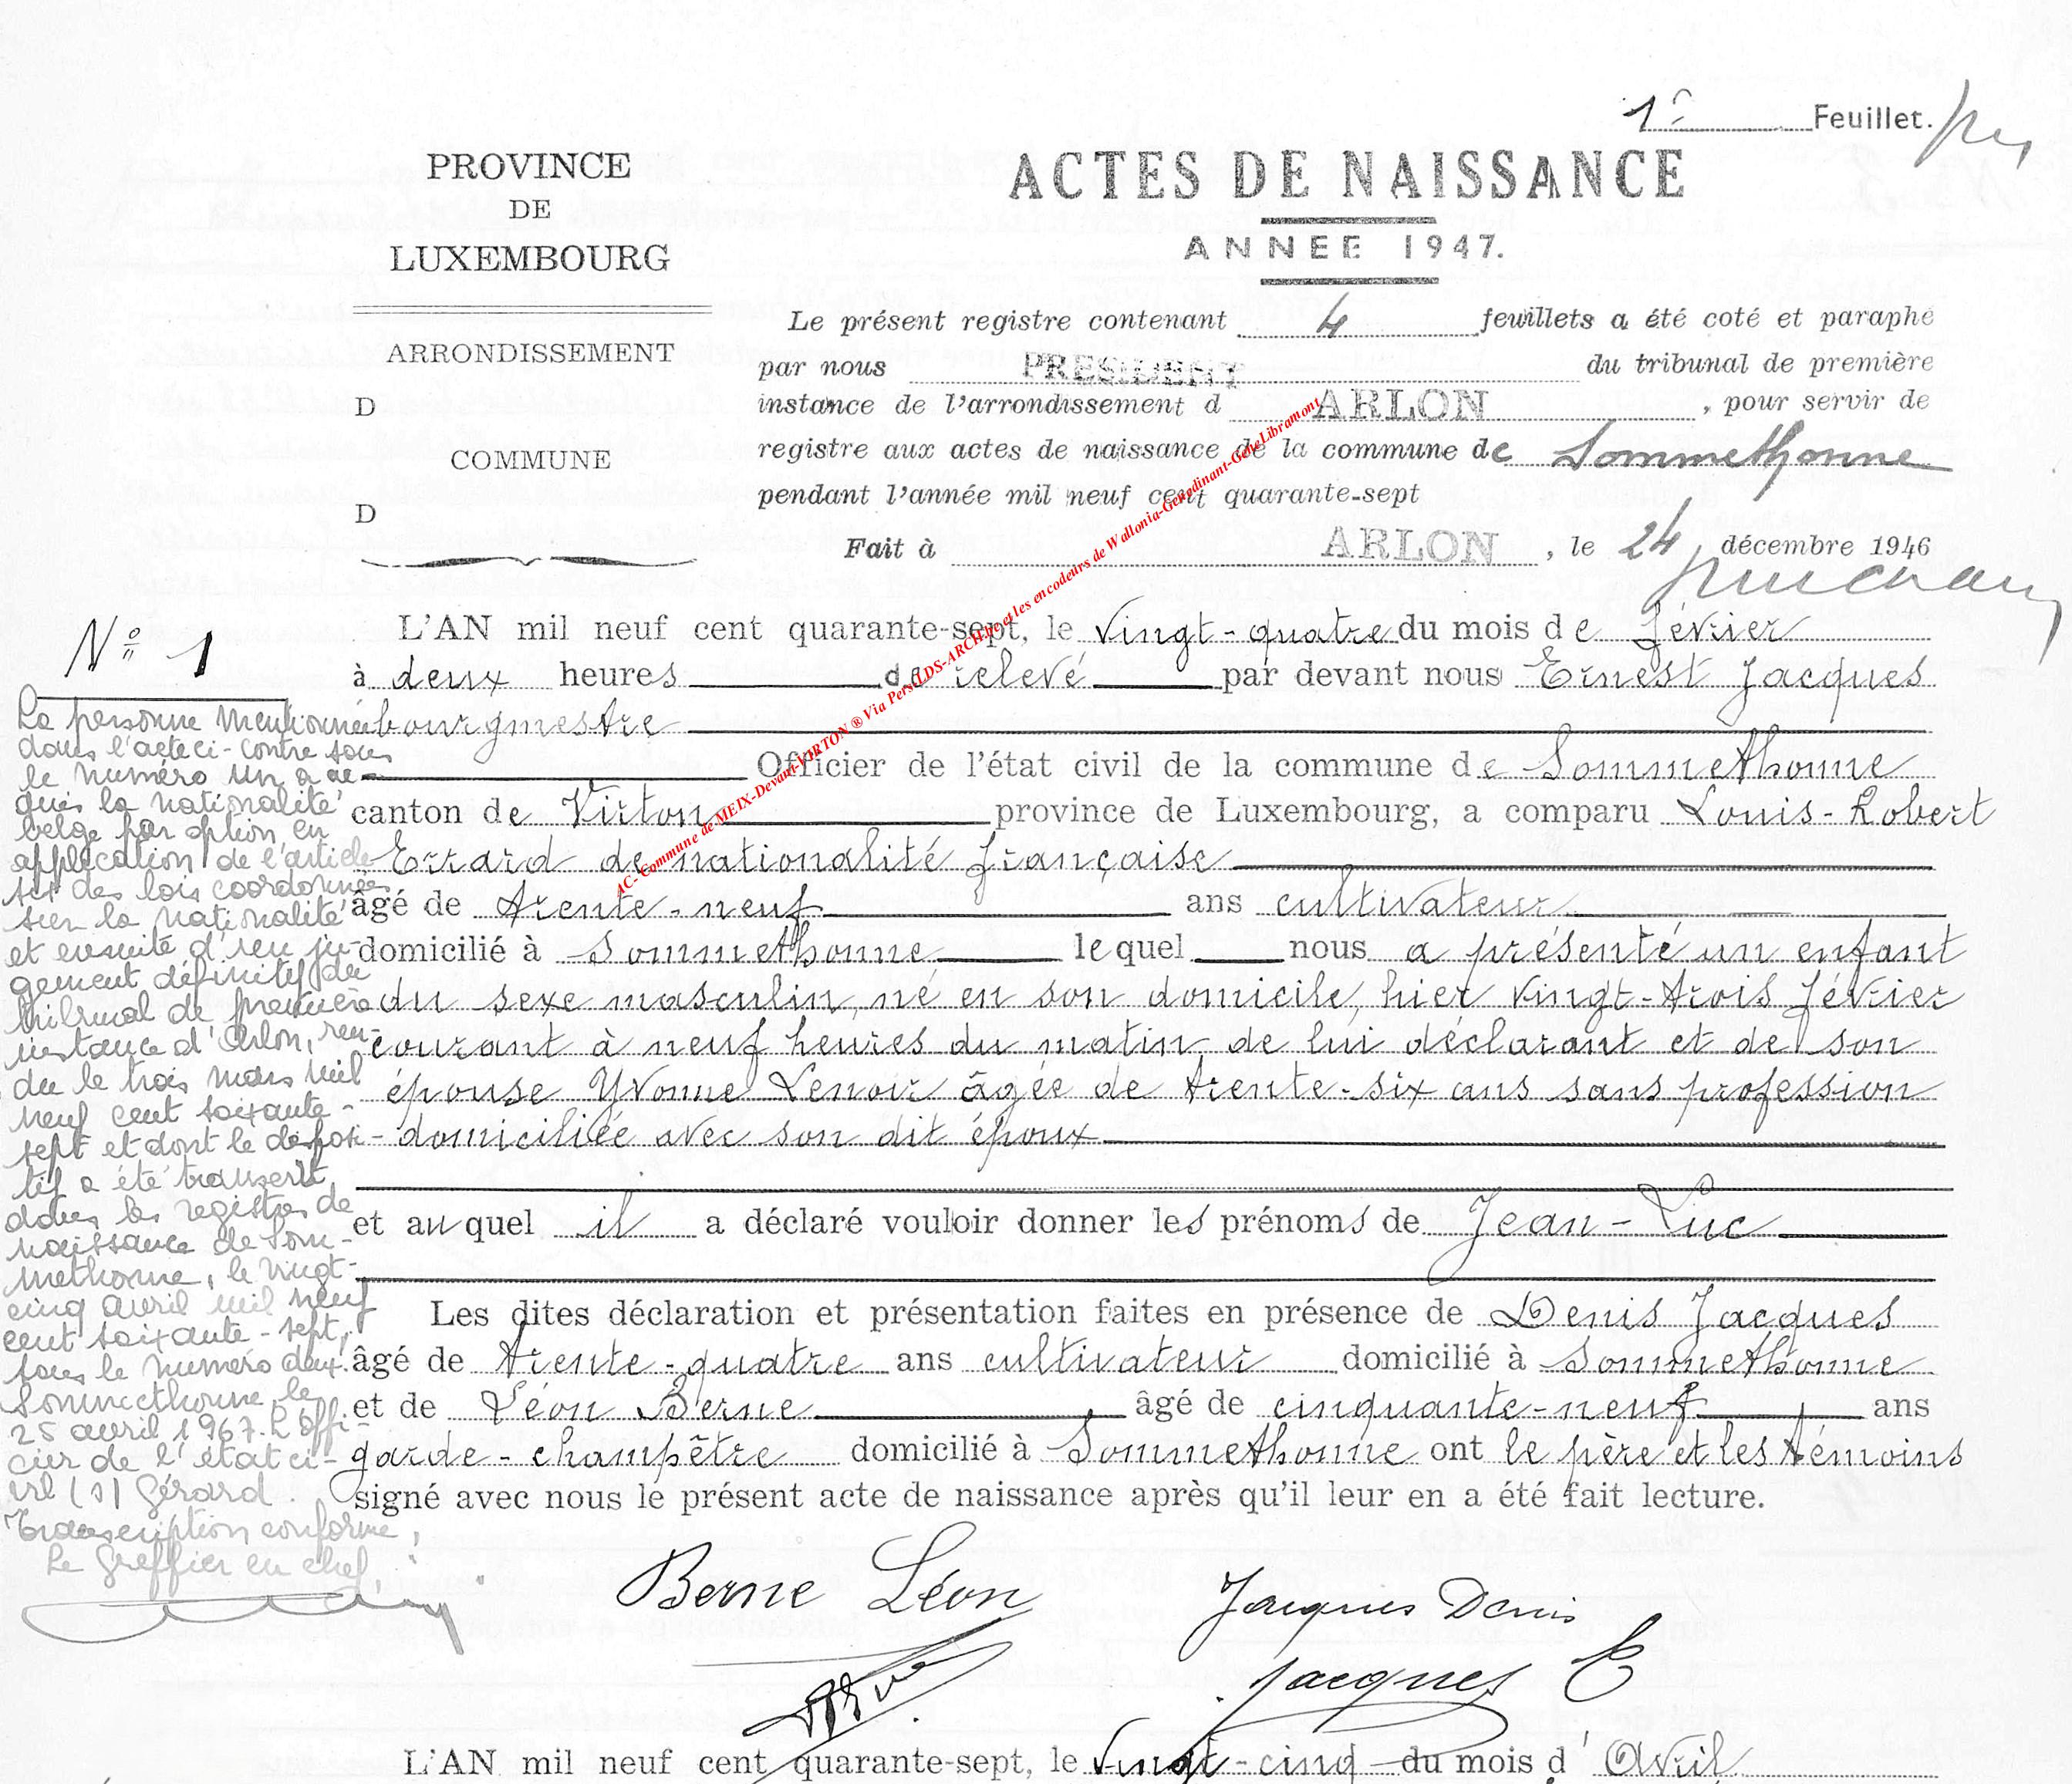 1° Feuillet.
PROVINCE
DE
LUXEMBOURG
ARRONDISSEMENT
D
COMMUNE
D
ACTES DE NAISSANCE
ANNEE 1947.
Le présent registre contenant 4 feuillets a été coté et paraphé
par nous PRESIDENT du tribunal de première
instance de l'arrondissement d ARLON, pour servir de
registre aux actes de naissance de la commune de Sommethonne
pendant l'année mil neuf cent quarante-sept
Fait à ARLON, le 24 décembre 1946
N° 1
La personne mentionnée
dans l'acte ci-contre sous
le numéro un a ac-
quis la nationalité
belge par option en
application de l'article
six des lois coordonnées
sur la nationalité
et ensuite d'un ju-
gement définitif du
tribunal de première
instance d'Arlon, ren-
du le trois mars mil
neuf cent soixante-
sept et dont le disposi-
tif a été transcrit
dans les registres de
naissance de Som-
methonne, le vingt-
cinq avril mil neuf
cent soixante-sept,
sous le numéro deux.
Sommethonne, le
25 avril 1967. L'offi-
cier de l'état ci-
vil (s) Gérard.
Transcription conforme,
Le Greffier en chef,
L'AN mil neuf cent quarante-sept, le vingt-quatre du mois de février
à deux heures de relevé par devant nous Ernest Jacques
bourgmestre
Officier de l'état civil de la commune de Sommethonne
canton de Virton province de Luxembourg, a comparu Louis-Robert
Errard de nationalité française
âgé de trente-neuf ans cultivateur
domicilié à Sommethonne lequel nous a présenté un enfant
du sexe masculin, né en son domicile, hier vingt-trois février
courant à neuf heures du matin, de lui déclarant et de son
épouse Yvonne Lenoir âgée de trente-six ans sans profession
domiciliée avec son dit époux
et auquel il a déclaré vouloir donner les prénoms de Jean-Luc
Les dites déclaration et présentation faites en présence de Denis Jacques
âgé de trente-quatre ans cultivateur domicilié à Sommethonne
et de Léon Berne âgé de cinquante-neuf ans
garde-champêtre domicilié à Sommethonne ont le père et les témoins
signé avec nous le présent acte de naissance après qu'il leur en a été fait lecture.
Berne Léon Jacques Denis
Jacques E
L'AN mil neuf cent quarante-sept, le vingt-cinq du mois d'Avril
AC-Commune de MEIX-Devant-VIRTON ® Via Pers LDS-ARCH.be et les encodeurs de Wallonia-Genedinant-GeneLibramont